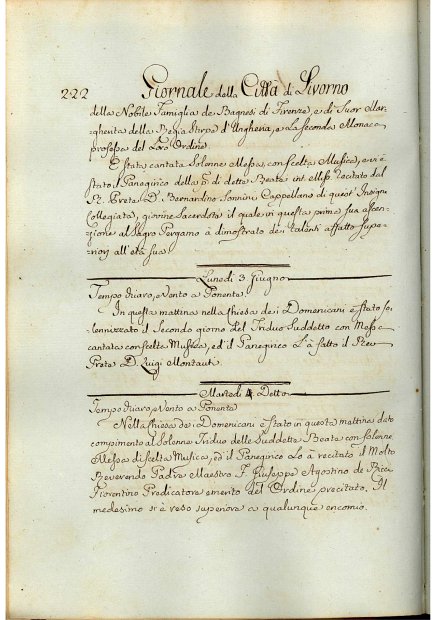 222 Giornale della Città di Livorno
della Nobile Famiglia de Bagnesi di Firenze, e di Suor Mar-
gherita della Regia Stirpe d'Ungheria, e la Seconda Monaca
professa del Loro Ordine.
È stata cantata Solenne Messa, con scelta Musica, ed è
stato il Panegirico della p.a di dette Beate int. Messa recitato dal
Prete D. Bernardino Sonnini Cappellano di quest' Insigne
Collegiata, giovine Sacerdote il quale in questa prima sua ascen-
zione al Sagro Pergamo à dimostrato dei talenti affatto supe-
riori all' età sua.
Lunedì 3. Giugno
Tempo chiaro, e Vento a Ponente.
In questa mattina nella Chiesa dei Domenicani è stato so-
lennizzato il Secondo giorno del Triduo Suddetto con Messa
cantata con scelta Musica, ed il Panegirico Li à fatto il
Prete D. Luigi Montauti.
Martedì 4. Detto
Tempo chiaro, e Vento a Ponente
Nella chiesa de Domenicani è stato in questa mattina dato
compimento al Solenne Triduo delle Suddette Beate con solenne
Messa di scelta Musica, ed il Panegirico Lo à recitato il Molto
Reverendo Padre Maestro F. Giuseppe Agostino de Ricci
Fiorentino Predicatore emerito del Ordine precitato. Il
medesimo si è reso superiore a qualunque encomio.